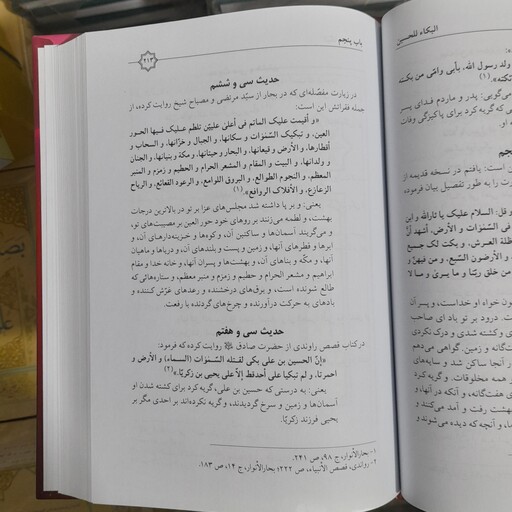 باب پنجم
۲۱۳
حدیث سی و ششم
در زیارت مفصّله‌ای که در بحار از سیّد مرتضی و مصباح شیخ روایت کرده، از
جمله فقراتش این است:
«و أقیمت علیک المآتم في أعلی علیین تلطم علیک فیها الحور
العین، و تبکیک السّمٰوات و سکانها، و الجبال و خزّانها، و السحاب و
أقطارها، و الأرض و قیعانها، و البحار و حیتانها، و مکة و بنیانها، و الجنان
و ولدانها، و البیت و المقام و المشعر الحرام و الحطیم و زمزم و المنبر
المعظم، و النجوم الطوالع، و البروق اللوامع، و الرعود القعاقع، و الریاح
الزعازع، و الأفلاک الروافع».(۱)
یعنی: و بر پا داشته شد مجلس‌های عزا بر تو در بالاترین درجات
بهشت، و لطمه می‌زنند بر روهای خود حور العین بر مصیبت‌های تو،
و می‌گریند آسمان‌ها و ساکنین آن، و کوه‌ها و خزینه‌دارهای آن، و
ابرها و قطرهای آنها، و زمین و پست و بلندهای آن، و دریاها و ماهیان
آنها، و مکّه و بناهای آن، و بهشت‌ها و پسران آنها، و خانه خدا و مقام
ابراهیم و مشعر الحرام و حطیم و زمزم و منبر معظم، و ستاره‌هائی که
طالع شونده است، و برق‌های درخشنده و رعدهای غرّش کننده و
بادهای به حرکت درآورنده و چرخ‌های گردنده با رفعت.
حدیث سی و هفتم
در کتاب قصص راوندی از حضرت صادق روایت کرده که فرمود:
«إنّ الحسین بن علي بکی لقتله السّمٰوات (السماء) و الأرض و
احمرتا، و لم تبکیا علی أحد قط إلّا علی یحیی بن زکریّا».(۲)
یعنی: به درستی که حسین بن علی، گریه کرد برای کشته شدن او
آسمان‌ها و زمین و سرخ گردیدند، و گریه نکرده‌اند بر احدی مگر بر
یحیی فرزند زکریّا.
۱- بحارالأنوار، ج ۹۸، ص ۲۴۱.
۲- رواندی، قصص الأنبیاء، ص ۲۲۲؛ بحارالأنوار، ج ۱۴، ص ۱۸۳.
البکاء للحسین
ولد رسول الله، بأبي وامّي من بکته
می‌گویی: پدر و مادرم فدای پسر
گریه کرد برای پاکیزگی وفات
ین است: یافتم در نسخه قدیمه از
رت را به طور تفصیل بیان فرموده،
و قل: السلام علیک یا ثار الله و ابن
في السّمٰوات و الأرض، أشهد أنّ
ظلّة العرش، و بکت لک جمیع
و الأرضون السّبع، و من فیهنّ و
من خلق ربّنا و ما یری و ما لا
خون خواه او خداست، و پسر آن
درود بر تو باد ای صاحب